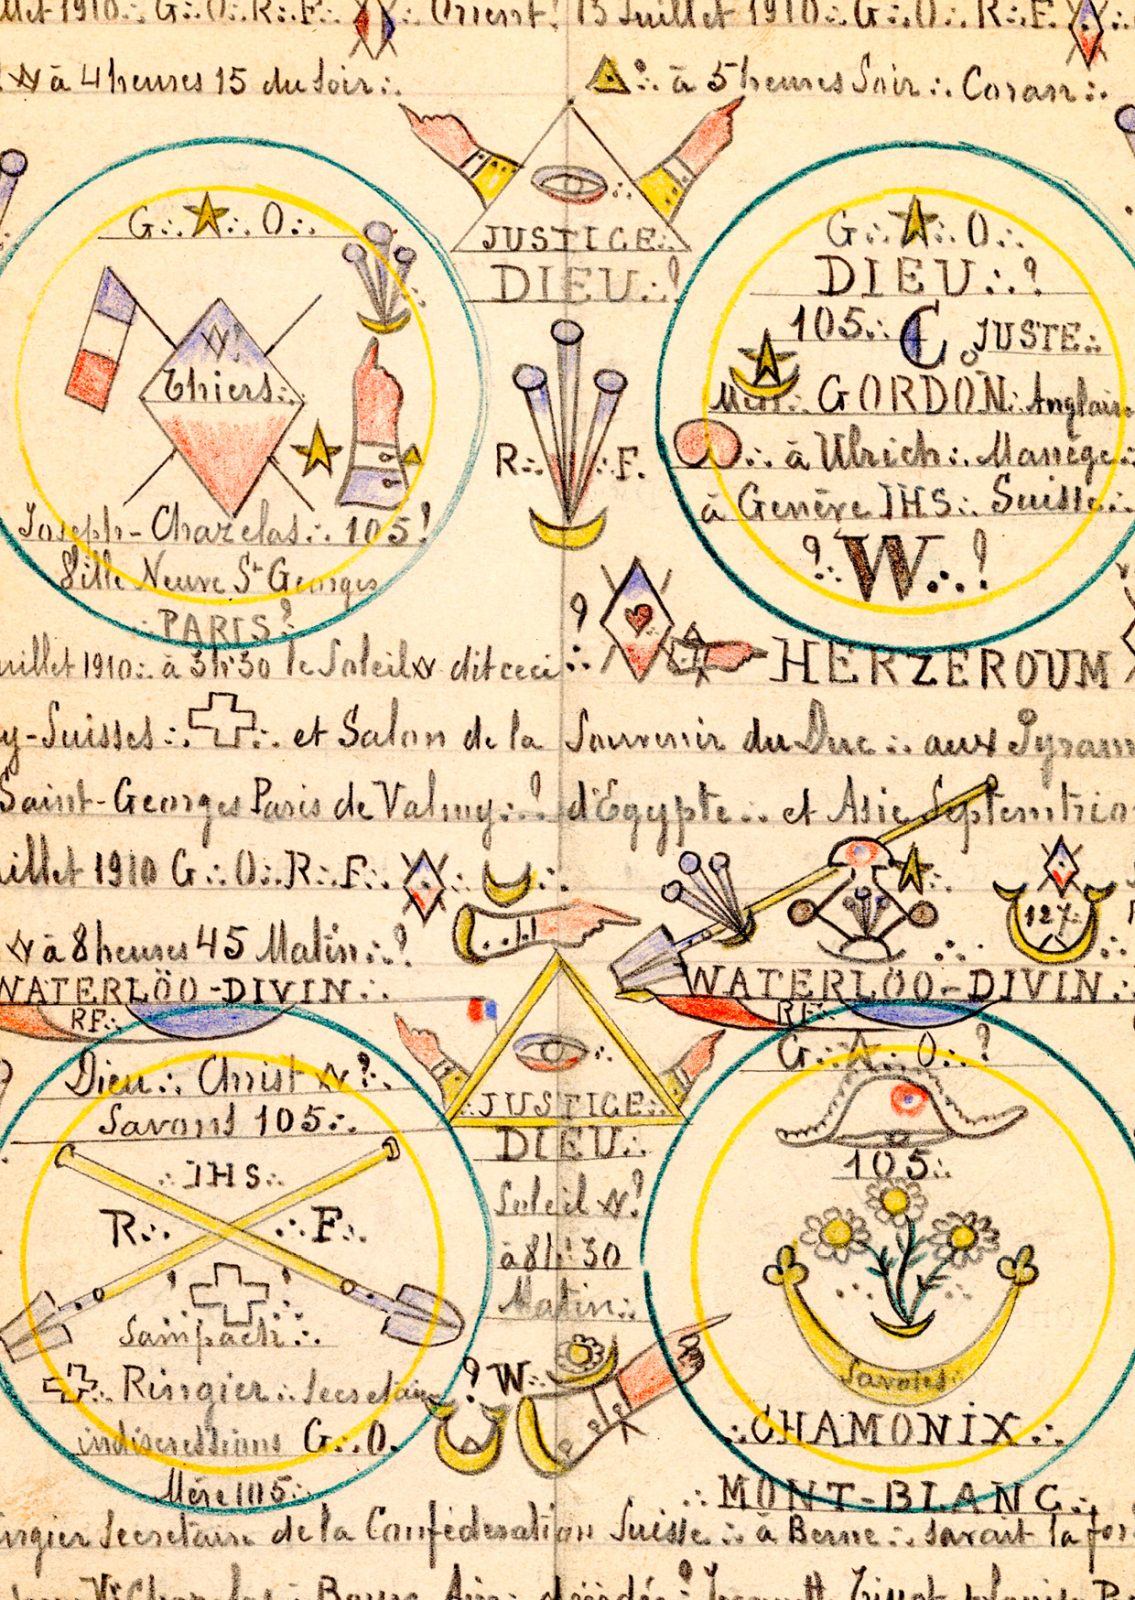 llet 1910∴ G∴O∴R∴F∴ Orient! 13 Juillet 1910∴ G∴O∴ R∴F∴
à 4 heures 15 du Soir∴
∴ à 5 heures Soir∴ Coran∴
JUSTICE∴
DIEU∴?
G∴ ∴ O∴
W!
Thiers∴
Joseph-Chazelas∴ 105!
Ville Neuve St Georges
PARIS?
R∴ ∴F.
G∴ ∴ O∴
DIEU∴?
105∴ C JUSTE∴
GORDON∴ Anglais
∴ à Ulrich∴ Manège∴
à Genève IHS∴ Suisse∴
?∴W∴!
uillet 1910∴ à 3h!30 le Soleil W dit ceci∴
? HERZEROUM
y-Suisses∴ ∴ et Salon de la Souvenir du Duc∴ aux Pyram
Saint-Georges Paris de Valmy∴? d'Egypte∴ et Asie Septentrio
uillet 1910 G∴O∴R∴F∴ ∴
W à 8 heures 45 Matin∴?
127∴
WATERLÖO-DIVIN∴
WATERLÖO-DIVIN∴
RF∴
RF∴
JUSTICE∴
DIEU∴
Soleil W?
à 8h!30
Matin∴
? W∴
Dieu∴ Christ W?∴
Savant 105∴
∴IHS∴
R∴ ∴F∴
Sampach∴
∴ Ringier∴ Secretaire
indiscressions G∴O.
Mère 105∴
G∴A∴O∴?
105∴
Savoies∴
∴CHAMONIX∴
∴MONT-BLANC∴
ingier Secretaire de la Confédération Suisse∴ à Berne∴ savait la for